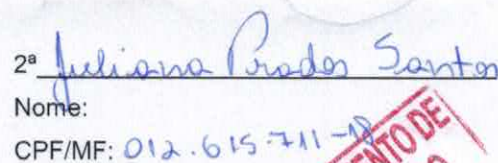 2ª Juliana Prados Santos
Nome:
CPF/MF: 012.615.711-18
NTO DE